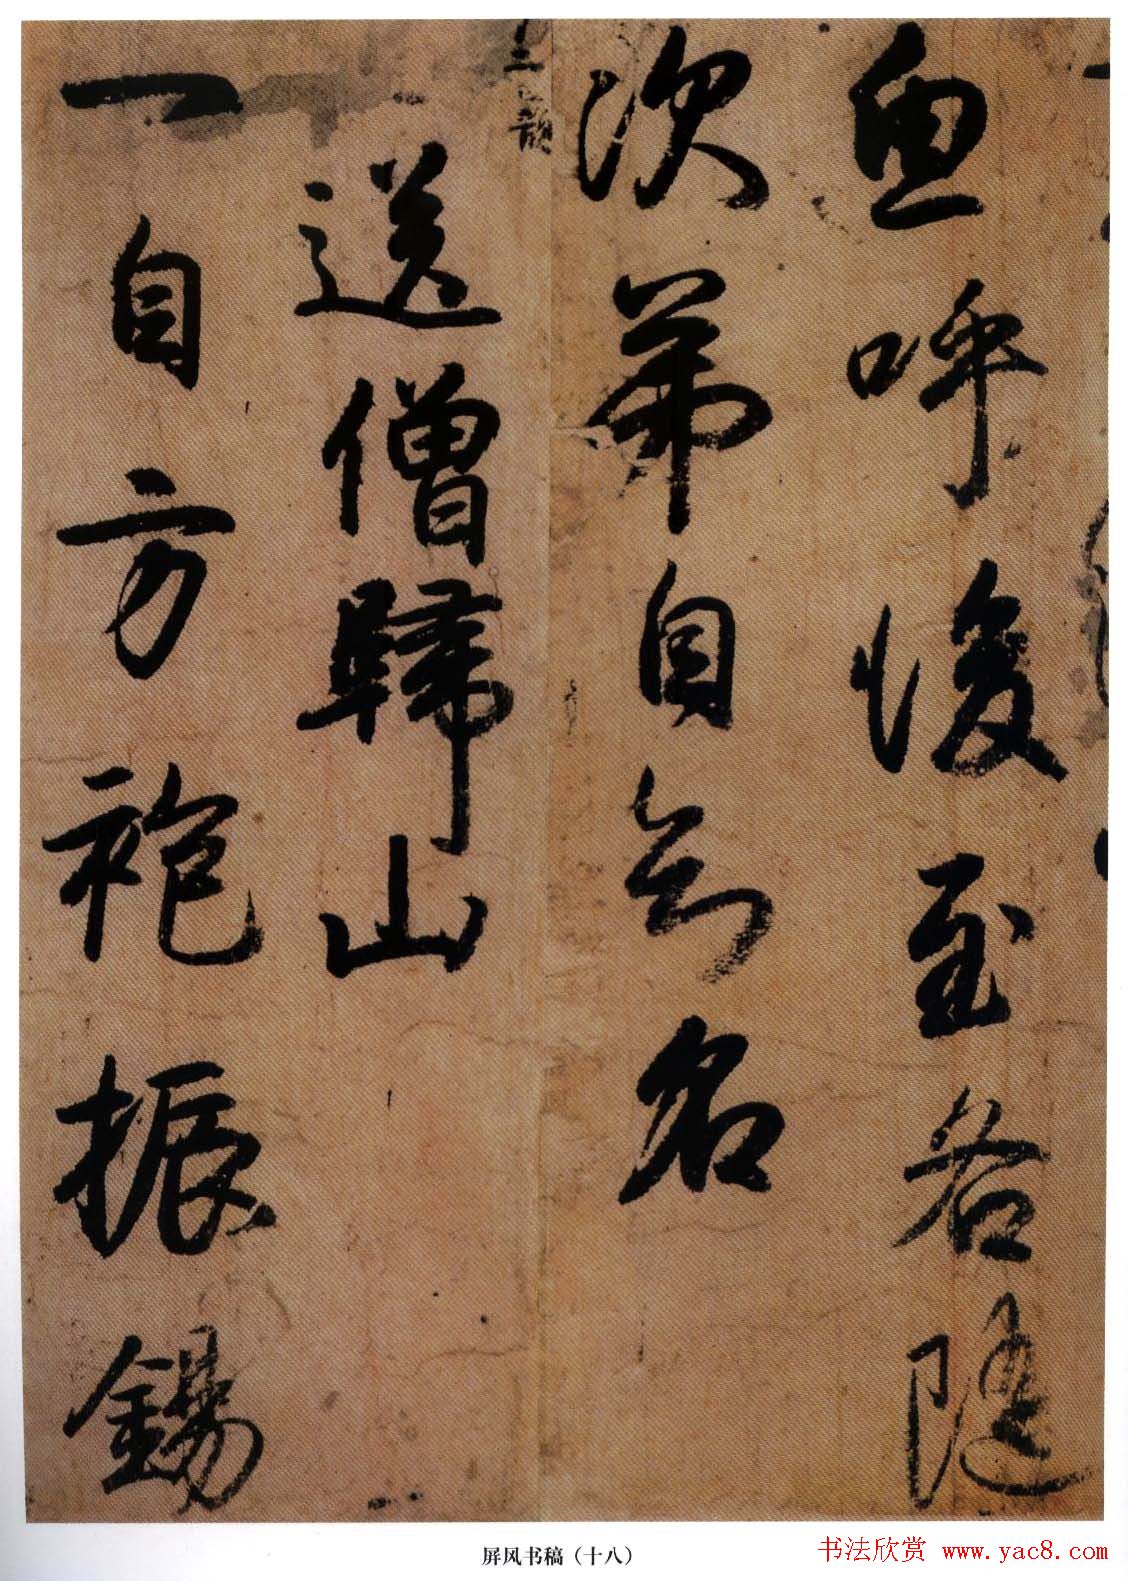 魚呼復至各隨
次第自知名
三韻
送僧歸山
一自方袍振錫
屏风书稿（十八）
书法欣赏 www.yac8.com